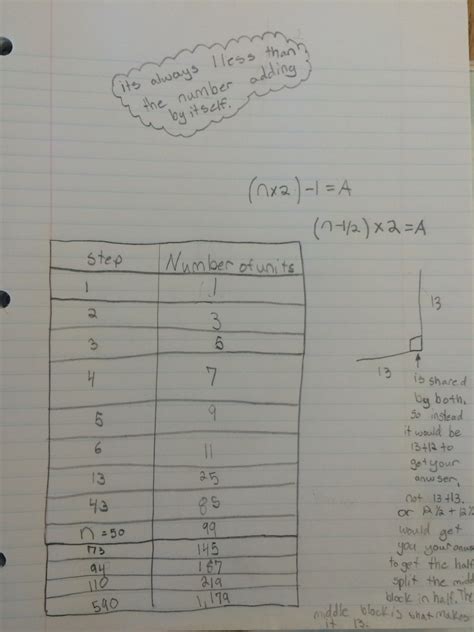 its always 1 less than
the number adding
by itself.
(n×2)-1=A
(n-1/2)×2=A
Step Number of units
1 1
2 3
3 5
4 7
5 9
6 11
13 25
43 85
n=50 99
73 145
94 187
110 219
590 1,179
13
13
is shared
by both,
so instead
it would be
13+12 to
get your
anwser,
not 13+13.
or 12½+12½
would get
you your
to get the half
split the
block in half. The
middle block is what makes
it 13.